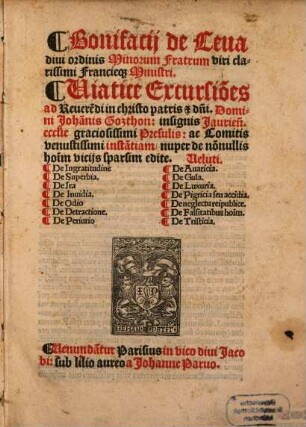 Bonifacij de Ceua
diui ordinis Minorum Fratrum viri cla-
rissimi Francieq; Mnistri.
Uiatice Excursiões
ad Reuerẽdi in christo patris & dñi. Domi
ni Johãnis Gozthon: insignis Jaurieñ.
ecclie graciosissimi Presulis: ac Comitis
venustissimi instãtiam: nuper de nõnullis
hoim vicijs sparsim edite. Ueluti.
De Ingratitudine
De Superbia.
De Ira
De Inuidia.
De Odio
De Detractione.
De Periurio
De Auaricia.
De Gula.
De Luxuria.
De Pigricia seu accidia.
De neglectu reipublice.
De Falsitatibus hoim.
De Tristicia.
Uenundãtur Parisius in vico diui Jaco
bi: sub lilio aureo a Johanne Paruo.